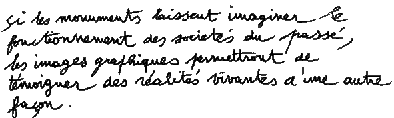 Si les monuments laissent imaginer le
fonctionnement des societés du passé,
les images graphiques permettront de
témoigner des réalités vivantes d'une autre
façon.